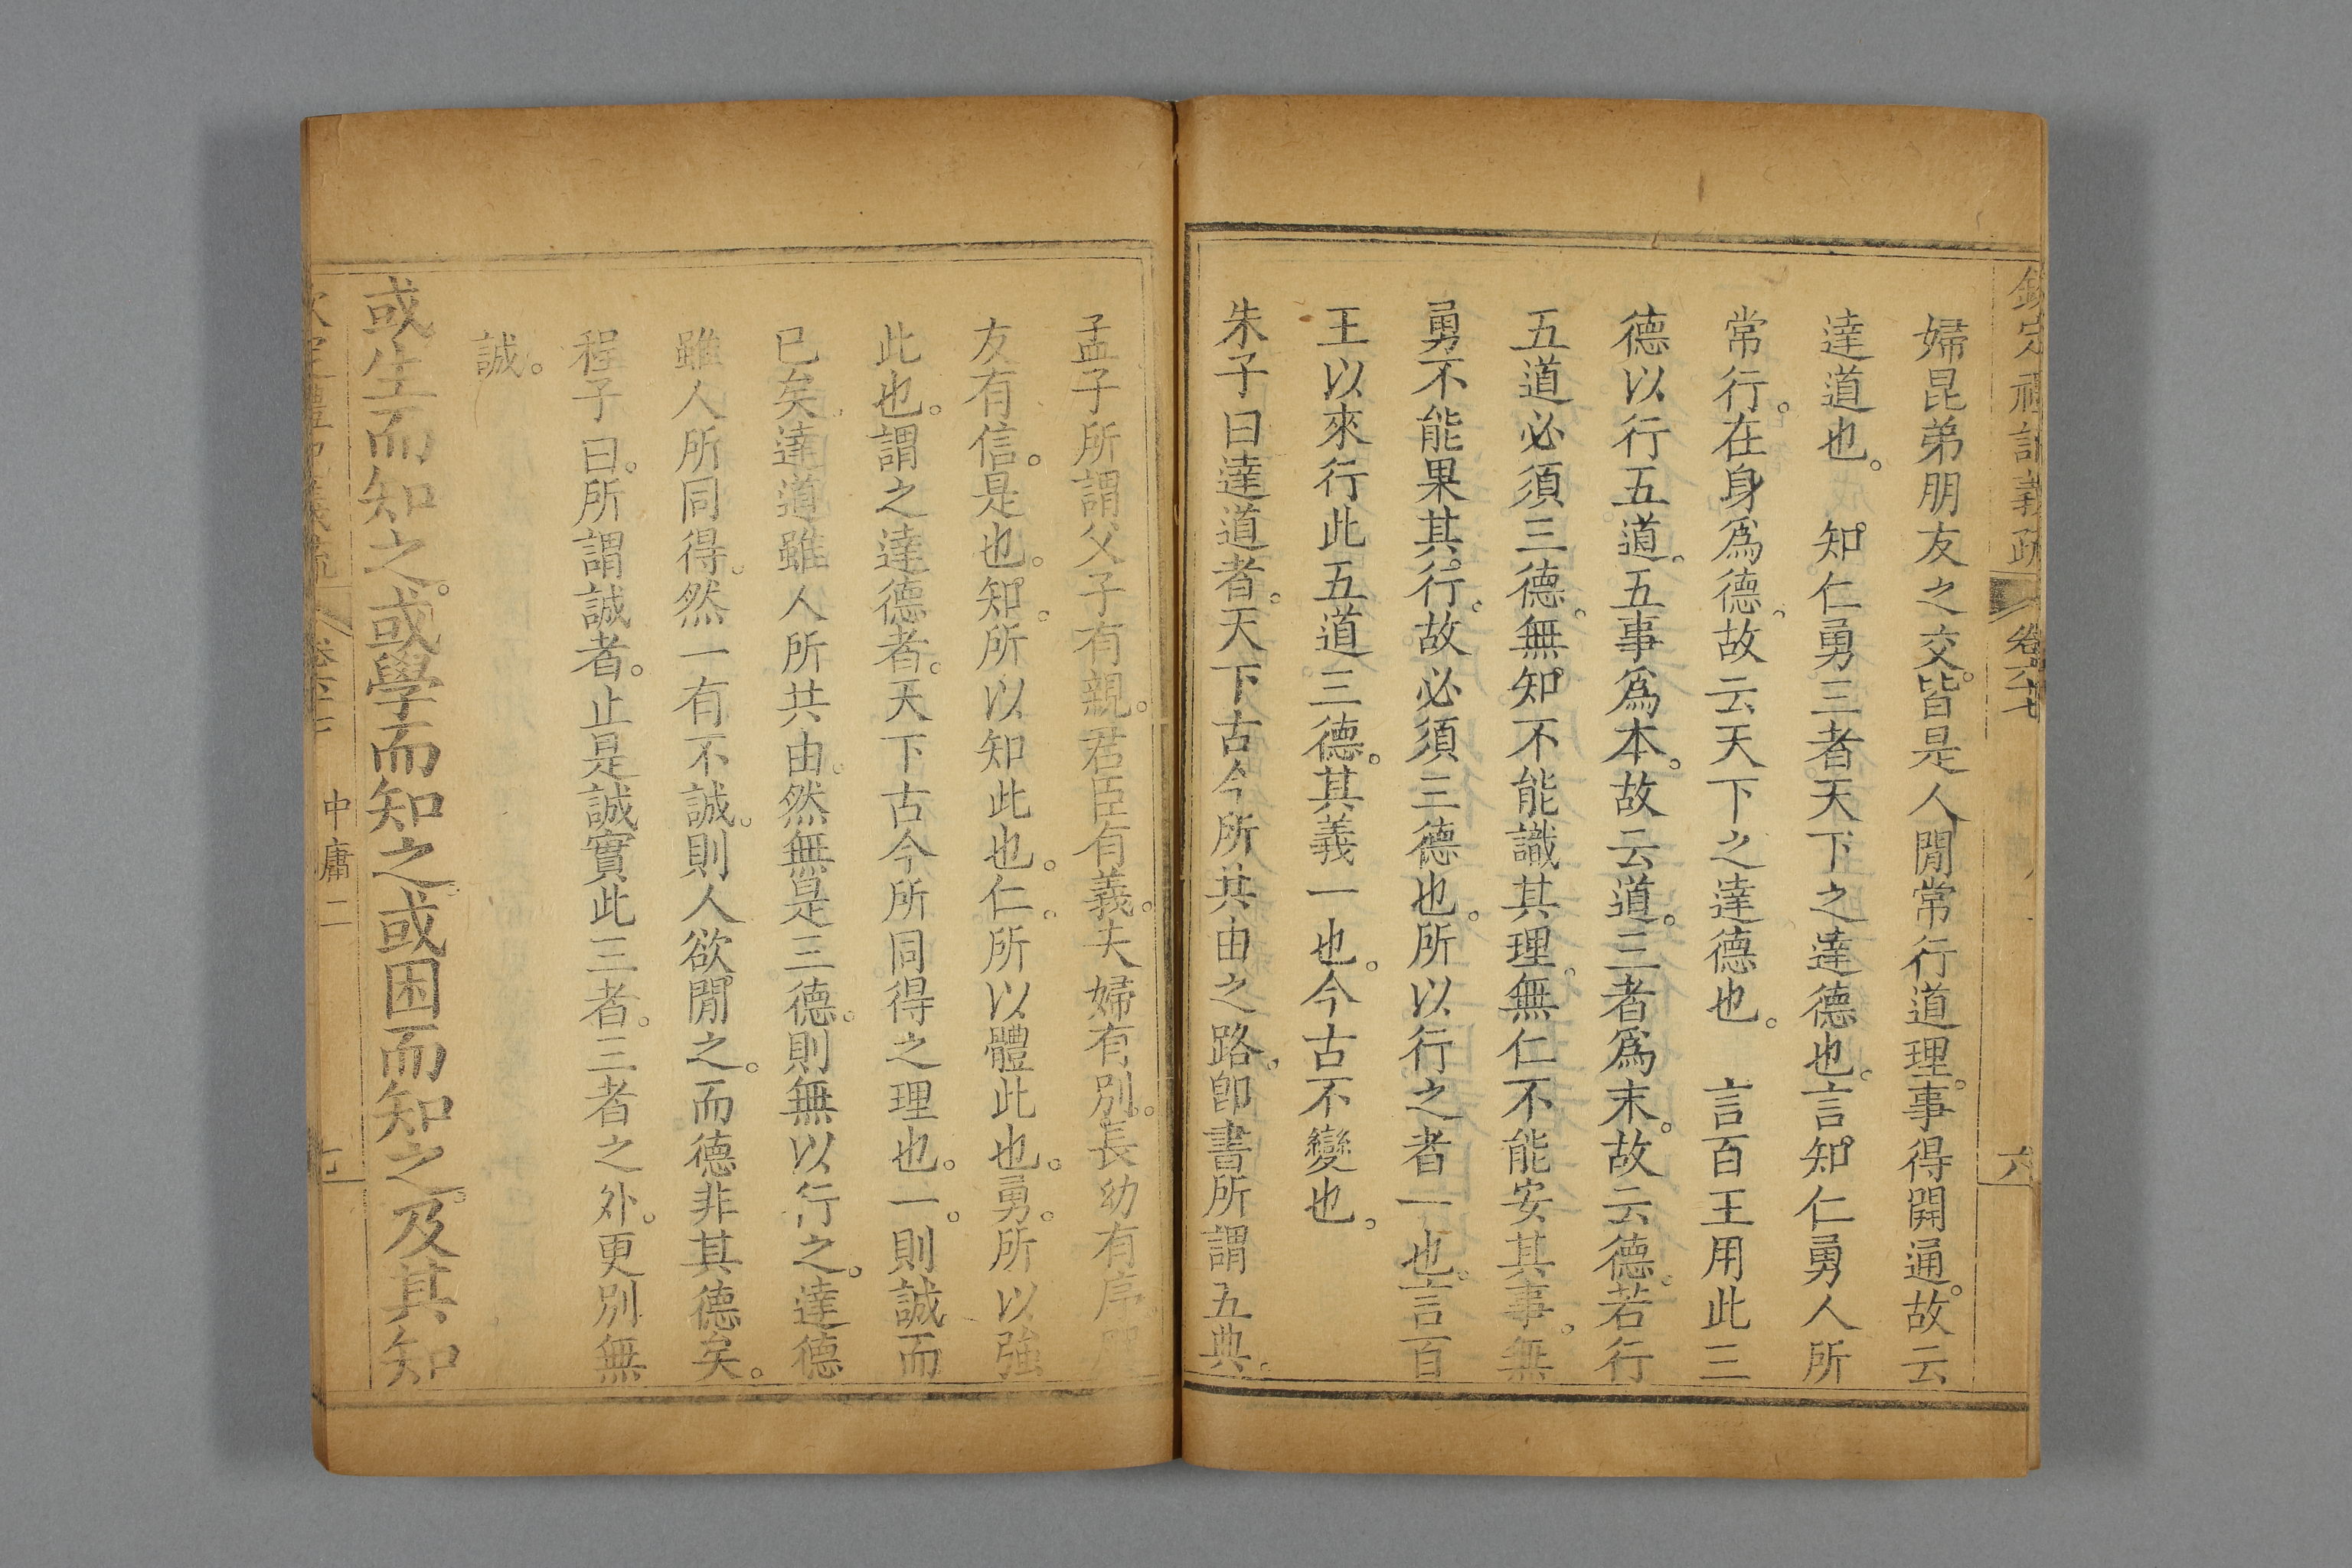 欽定禮記義疏 卷六十七 六
婦昆弟朋友之交。皆是人閒常行道理。事得開通。故云
達道也。 知仁勇三者天下之達德也。言知仁勇人所
常行。在身爲德。故云天下之達德也。 言百王用此三
德以行五道。五事爲本。故云道。三者爲末。故云德。若行
五道必須三德。無知不能識其理。無仁不能安其事。無
勇不能果其行。故必須三德也。所以行之者一也。言百
王以來行此五道三德。其義一也。今古不變也。
朱子曰達道者。天下古今所共由之路。卽書所謂五典。
孟子所謂父子有親。君臣有義。夫婦有別。長幼有序。朋
友有信。是也。知。所以知此也。仁。所以體此也。勇。所以強
此也。謂之達德者。天下古今所同得之理也。一。則誠而
已矣。達道雖人所共由。然無是三德。則無以行之。達德
雖人所同得。然一有不誠。則人欲閒之。而德非其德矣。
程子曰。所謂誠者。止是誠實此三者。三者之外。更別無
誠。
或生而知之。或學而知之。或困而知之。及其知
欽定禮記義疏 卷六十七 中庸二 七